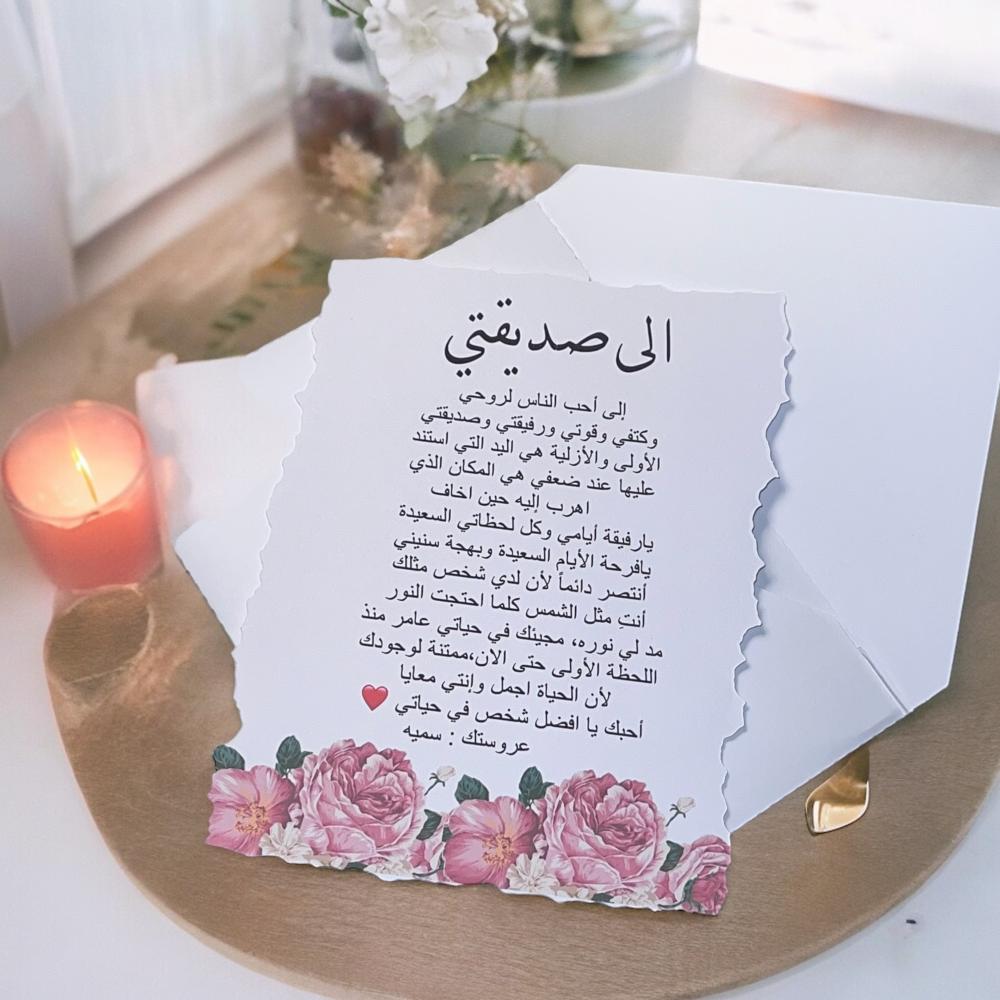 الى صديقتي
إلى أحب الناس لروحي
وكتفي وقوتي ورفيقتي وصديقتي
الأولى والأزلية هي اليد التي استند
عليها عند ضعفي هي المكان الذي
اهرب إليه حين اخاف
يارفيقة أيامي وكل لحظاتي السعيدة
يافرحة الأيام السعيدة وبهجة سنيني
أنتصر دائماً لأن لدي شخص مثلك
أنتِ مثل الشمس كلما احتجت النور
مد لي نوره، مجيئك في حياتي عامر منذ
اللحظة الأولى حتى الان،ممتنة لوجودك
لأن الحياة اجمل وإنتي معايا
أحبك يا افضل شخص في حياتي ❤️
عروستك : سميه